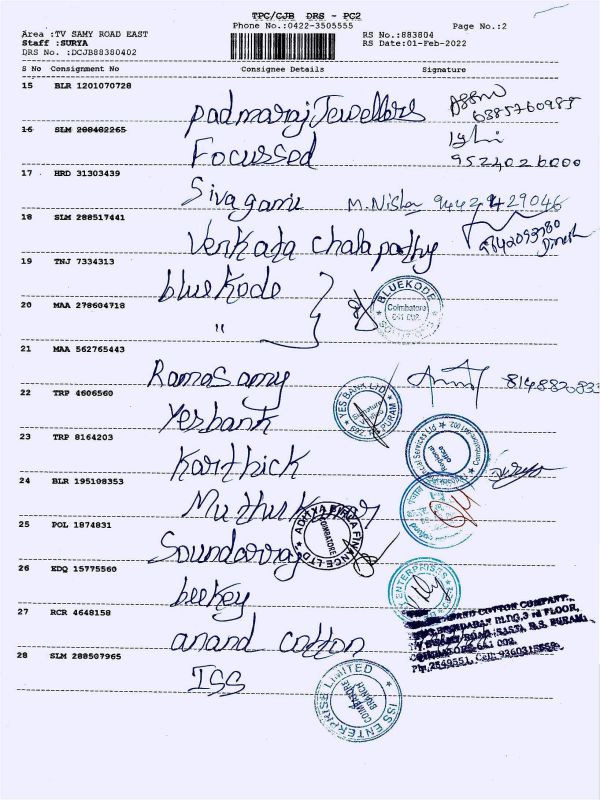 TPC/CJB DRS - PC2
Phone No.:0422-3505555
Page No.:2
Area :TV SAMY ROAD EAST
Staff :SURYA
DRS No. :DCJB88380402
RS No.:883804
RS Date:01-Feb-2022
S No Consignment No Consignee Details Signature
15 BLR 1201070728
padmaraj Jewellers
6385760985
16 SLM 288482265
Focussed
17 HRD 31303439
Sivagami M. Nisha 9442429046
18 SLM 288517441
Venkata chalapathy
9842093780
Dinesh
19 TNJ 7334313
bluekode
BLUEKODE
Coimbatore
641 002.
20 MAA 278604718
"
21 MAA 562765443
Ramasamy
22 TRP 4606560
Yesbank
YES BANK LTD
PURAM
23 TRP 8164203
Karthick
24 BLR 195108353
Muthu Kumar
25 POL 1874831
Soundarraj
ADITYA BIRLA FINANCE LTD
COIMBATORE
26 EDQ 15775560
beekey
ENTERPRISES
27 RCR 4648158
anand cotton
COTTON COMPANY,
28 SLM 288507965
ISS
ISS ENTERPRISE LIMITED
COIMBATORE
BRANCH